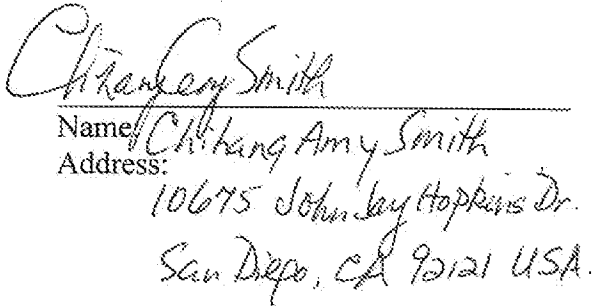 Smith
Name: Chihang Amy Smith
Address:
10675 John Jay Hopkins Dr.
San Diego, CA 92121 USA.